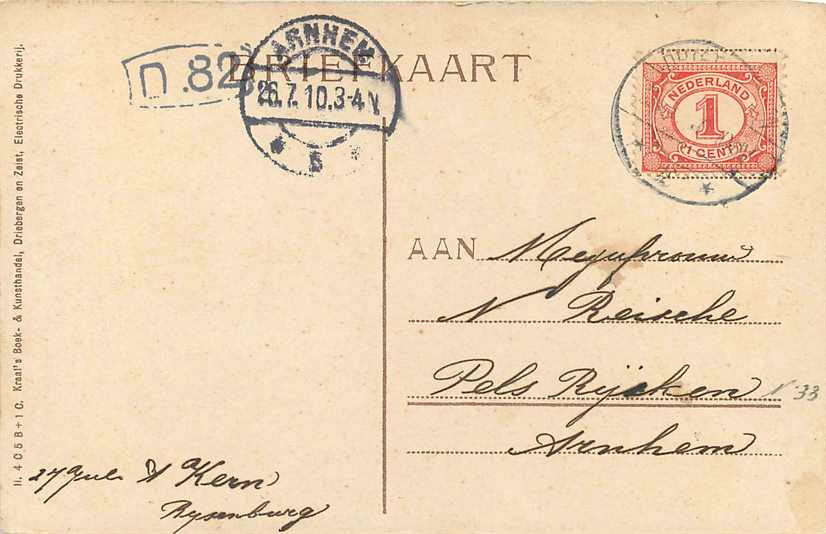 BRIEFKAART
N.82
ARNHEM
26.7.10.3-4 V.
5
NEDERLAND
1
1 CENT
AAN Mejufvrouw
N Reische
Pels Rijcken
N 33
Arnhem
27 Juli
Kern
Rysenburg
II. 4 0 5 8 + 1 C. Kraal's Boek- & Kunsthandel, Driebergen en Zeist, Electrische Drukkerij.